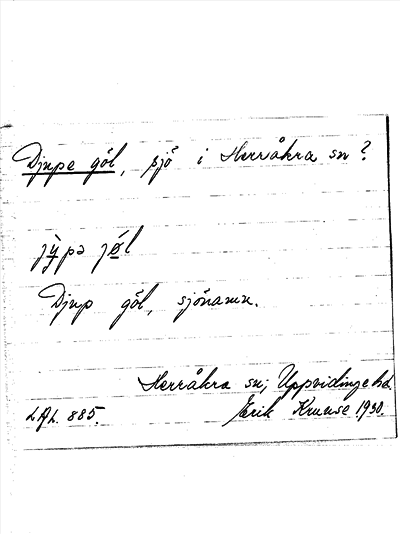 Djupe göl, sjö i Herråkra sn?
jỳ̲pə jǿ̲l
Djup göl, sjönamn.
Herråkra sn; Uppvidinge hd.
LAL. 885. Erik Kruuse 1930.